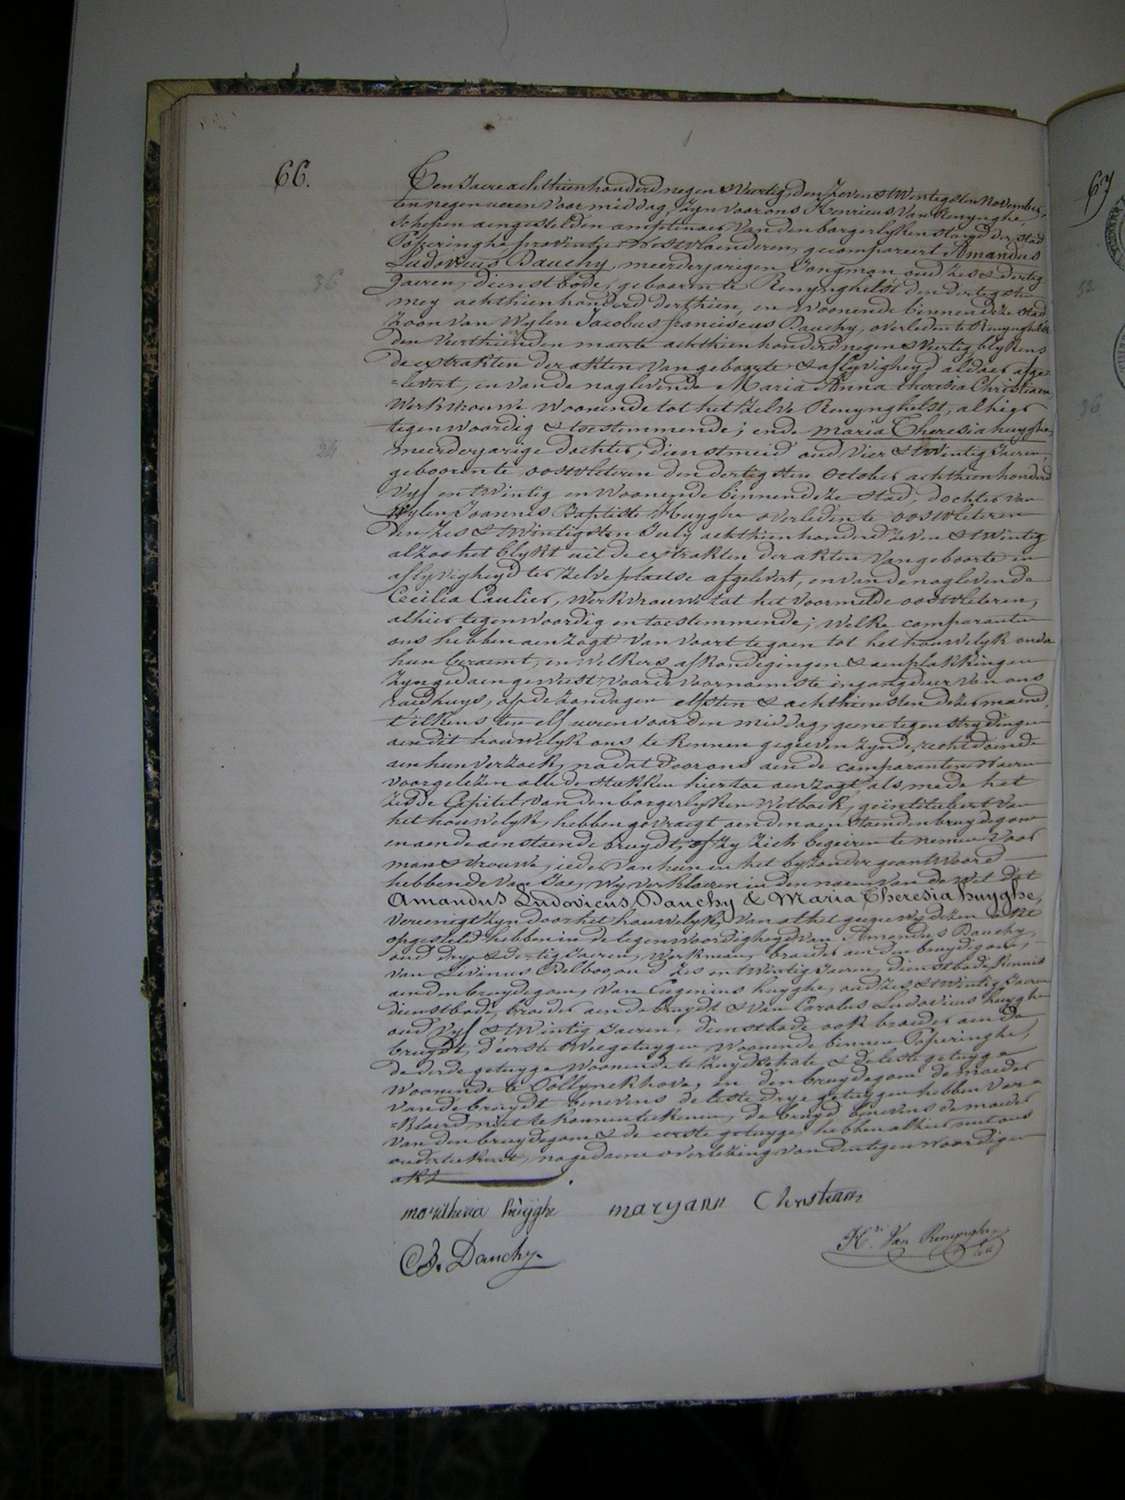 66.
Ten Jaere achthienhonderd negen & Veertig, den Zeven & Twintigsten November,
ten negen ueren voormiddag, Zyn voor ons Henricus Van Renynghe,
Schepen aengestelden amptenaer Van den borgerlyken stand der Stad
Poperinghe provintie Westvlaenderen, gecompareert Amandus
Ludovicus Dauchy, meerderjarigen Jongman, oud Zes & dertig
Jaeren, dienstbode, gebooren te Renynghelst den dertigsten
mey achthienhonderd derthien, en Woonende binnen deze Stad
Zoon van Wylen Jacobus franciscus Dauchy, overleden te Renynghelst
den Veerthienden maerte achthienhonderd negen & Veertig, blykens
de extrakten der akten van geboorte & aflyvigheyd aldaer afge-
=levert, en van de naglevende Maria Anna theresia Christiaen,
Werkvrouwe Woonende tot het Zelve Renynghelst, alhier
tegenwoordig & toestemmende; ende maria Theresia huyghe,
meerderjarige dochter, dienstmeid oud Vier & Twintig Jaeren,
gebooren te oostvleteren den dertigsten October achthienhonderd
Vyf en Twintig en Woonende binnen deze Stad, dochter van
Wylen Joannes Baptiste Huyghe overleden te oostvleteren
den Zes & Twintigsten July achthienhonderd Zeven & Twintig
alzoo het blykt uit de extrakten der akten van geboorte en
aflyvigheyd ter Zelve plaetse afgelevert, en van de naglevende
Cecilia Caulier, Werkvrouwe tot het voormelde oostvleteren,
alhier tegenwoordig en toestemmende; Welke comparanten
ons hebben aenzogt van voort te gaen tot het houwelyk onder
hun beraemt, en Welkers afkondigingen & aenplakkingen
Zyn gedaen geweest voor de voornaemste ingangdeur van ons
raedhuys, op de Zondagen elfsten & achthiensten dezer maend,
telkens ten elf ueren voor den middag, geene tegenstrydingen
aen dit houwelyk ons te kennen gegeeven Zynde, recht doende
aen hun verzoek, na dat door ons aen de comparanten Waeren
voorgelezen alle de stukken hier toe aenzogt, als mede het
Zesde Capittel van den borgerlyken Wetboek, geïntituleert van
het houwelyk, hebben gevraegt aen den aenstaenden bruydegom
en aen de aenstaende bruydt, of zy Zich begeeren te nemen voor
man & Vrouwe, ieder van hun in het byzonder geantwoord
hebbende van Jae, Wy verklaeren in den naem van de Wet dat
Amandus Ludovicus Dauchy & Maria Theresia huyghe,
vereenigt Zyn door het houwelyk, van al het geene Wy dezen akte
opgesteld hebben in de tegenwoordigheyd van Amandus Dauchy,
oud drye & dertig Jaeren, Werkman, broeder aen den bruydegom,
van Livinus Delboo, oud Zes en Twintig Jaeren, dienstbode, kennis
aen den bruydegom, van Eugenius huyghe, oud Zes & Twintig Jaeren
dienstbode, broeder aen de bruydt & van Carolus Ludovicus huyghe
oud Vyf & Twintig Jaeren, dienstbode ook broeder aen de
bruydt, d'eerste twee getuygen Woonende binnen Poperinghe,
de derde getuyge Woonende te Zuydschote & de leste getuyge
Woonende te Pollynckhove, en den bruydegom de moeder
van de bruydt benevens de leste drye getuygen hebben ver=
=klaerd niet te konnen teekenen, de bruyd benevens de moeder
van den bruydegom & de eerste getuyge hebben alhier met ons
onderteekent, na gedaene overlezing van den tegenwoordigen
akt
maritheresia huyghe maryann Christiaen
Dauchy Hri Van Renynghe